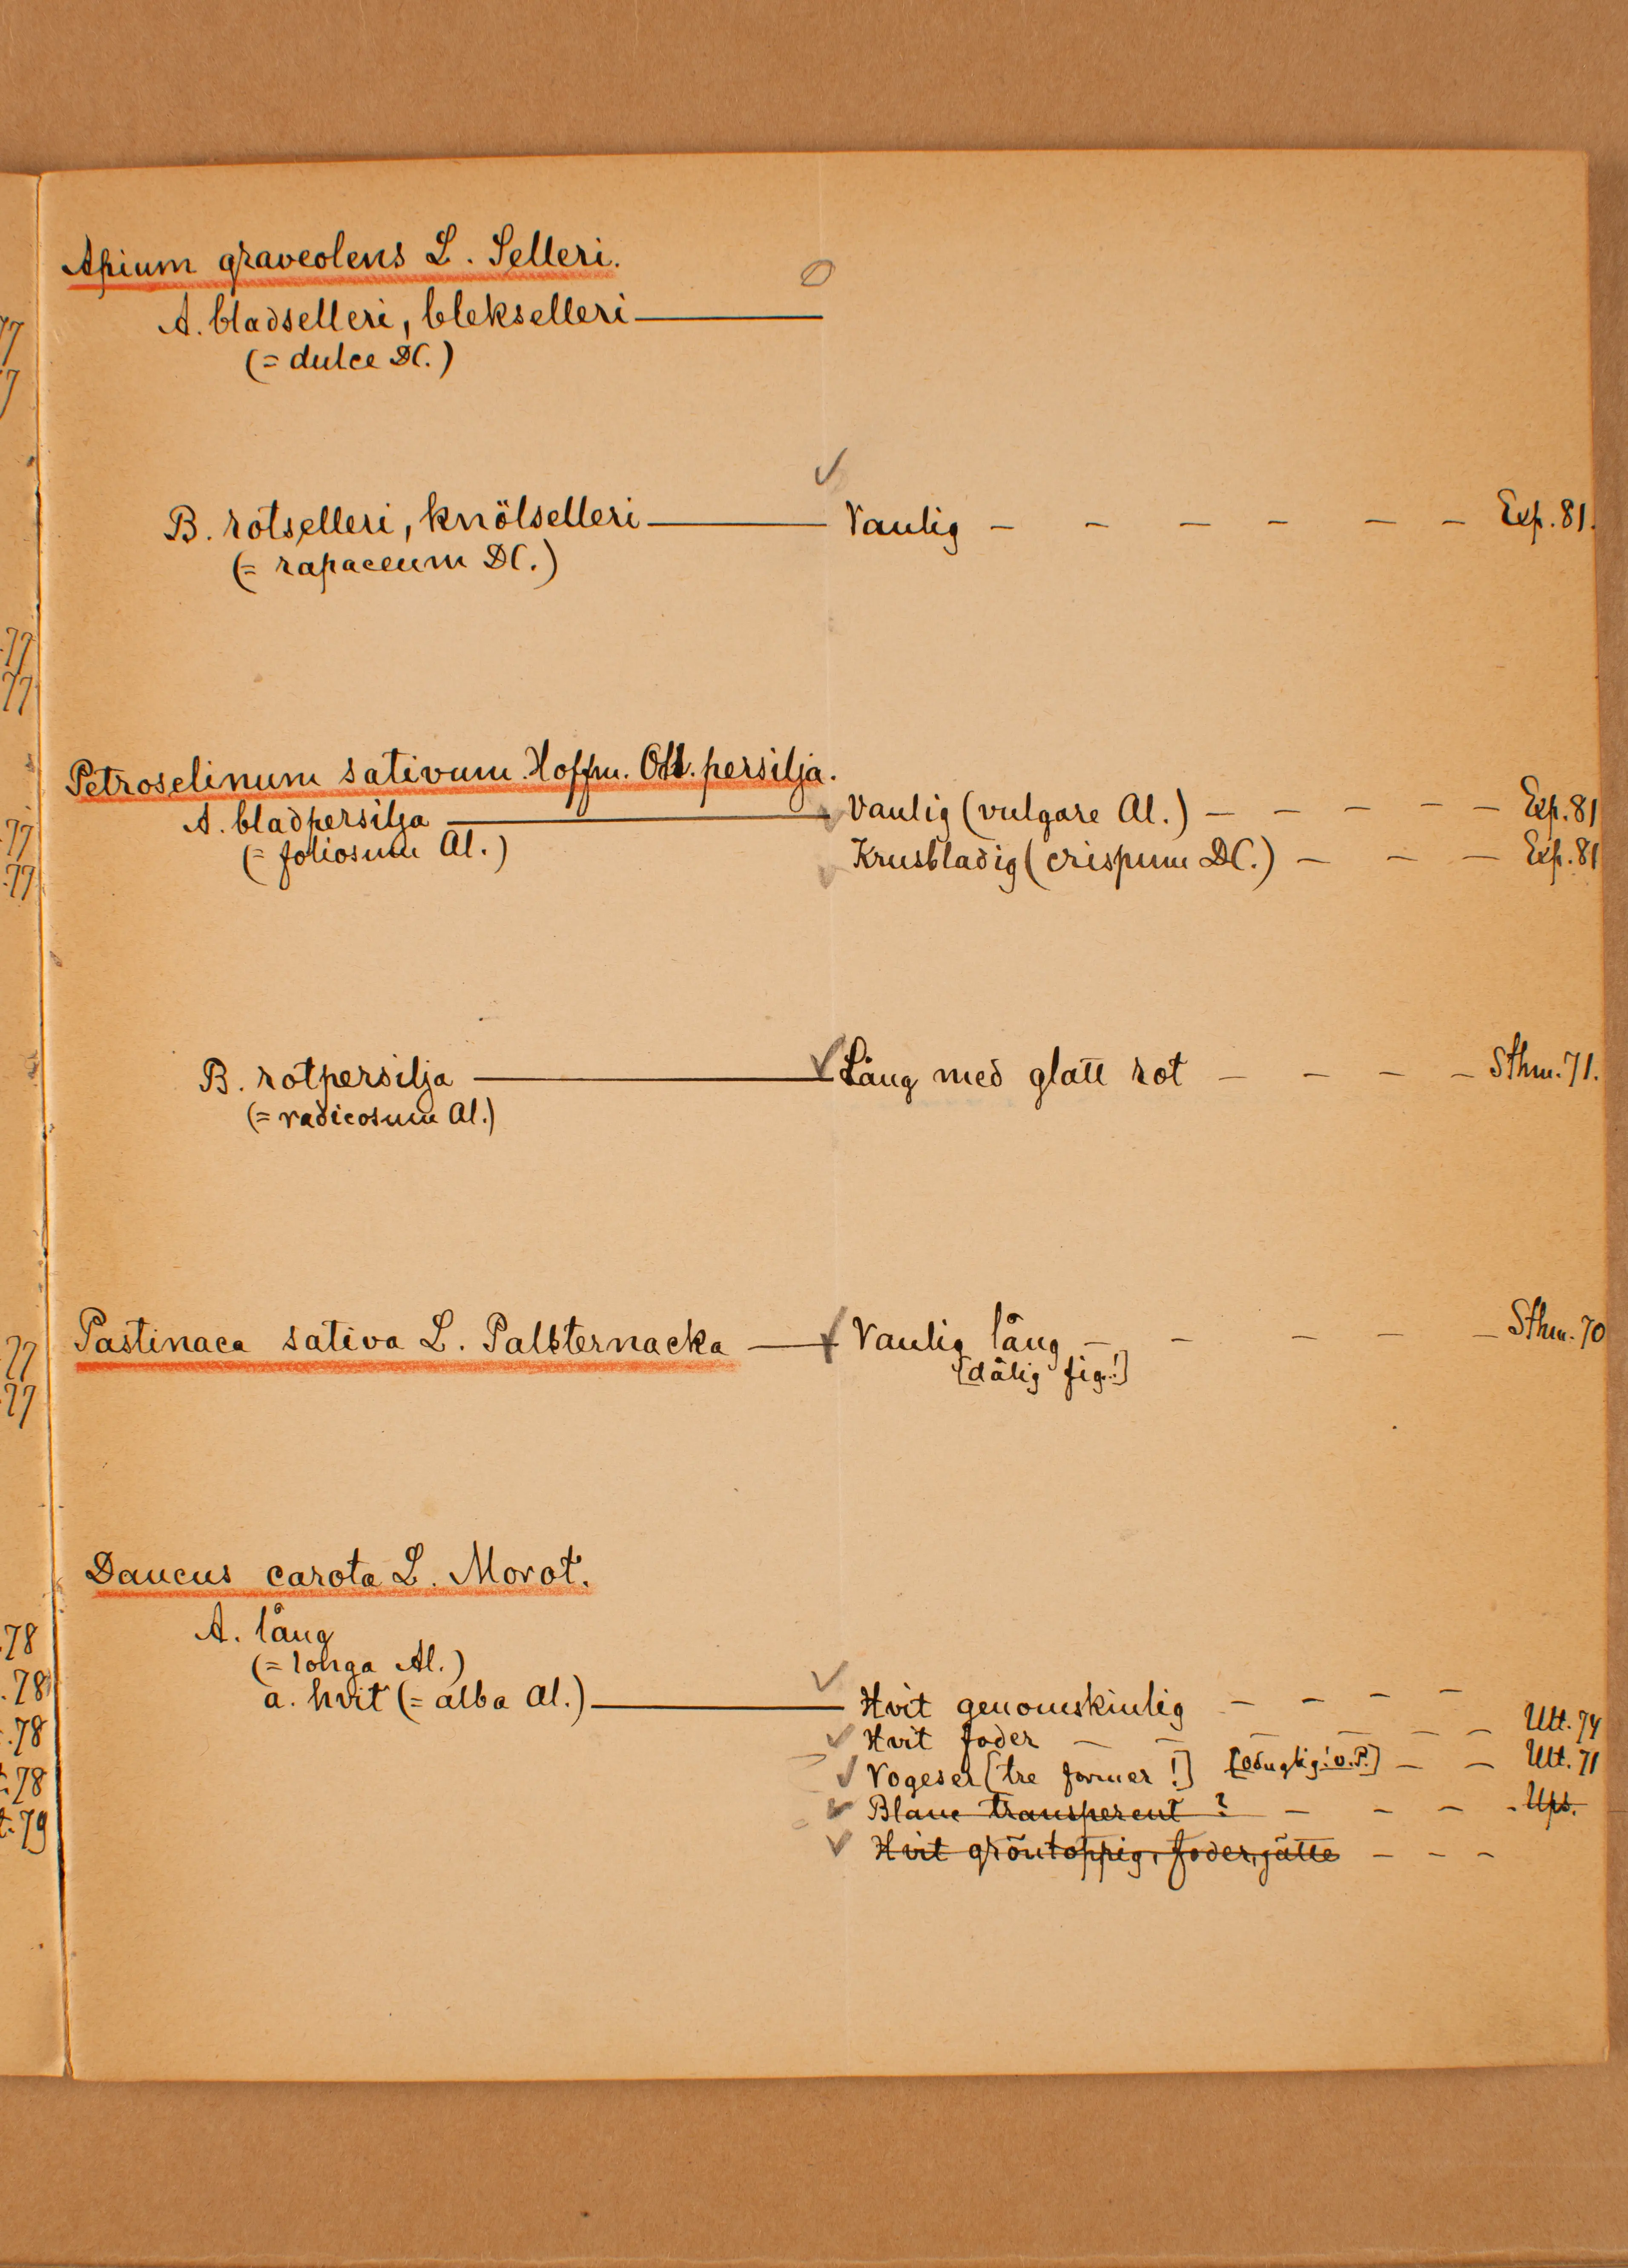 Apium graveolens L. Selleri.
A. bladselleri, blekselleri
(= dulce DC.)
B. rotselleri, knölselleri — Vanlig - - - - - - Exp. 81.
(= rapaceum DC.)
Petroselinum sativum Hoffm. persilja.
A. bladpersilja — Vanlig (vulgare Al.) - - - - - Exp. 81
(= foliosum Al.) Krusbladig (crispum DC.) - - - Exp. 81
B. rotpersilja — Lång med glatt rot - - - - Sthm. 71.
(= radicosum Al.)
Pastinaca sativa L. Palsternacka — Vanlig lång - - - - - Sthm. 70
[dålig fig.!]
Daucus carota L. Morot.
A. lång
(= longa Al.)
a. hvit (= alba Al.) — Hvit genomskinlig - - - -
Hvit foder - - - - - - Ult. 74
Vogeser [tre former!] - - Ult. 71
Blanc transperent ? - - - - Ups.
Hvit gröntoppig, foder, jätte - - -
77
7
77
77
77
77
77
77
78
78
78
78
79